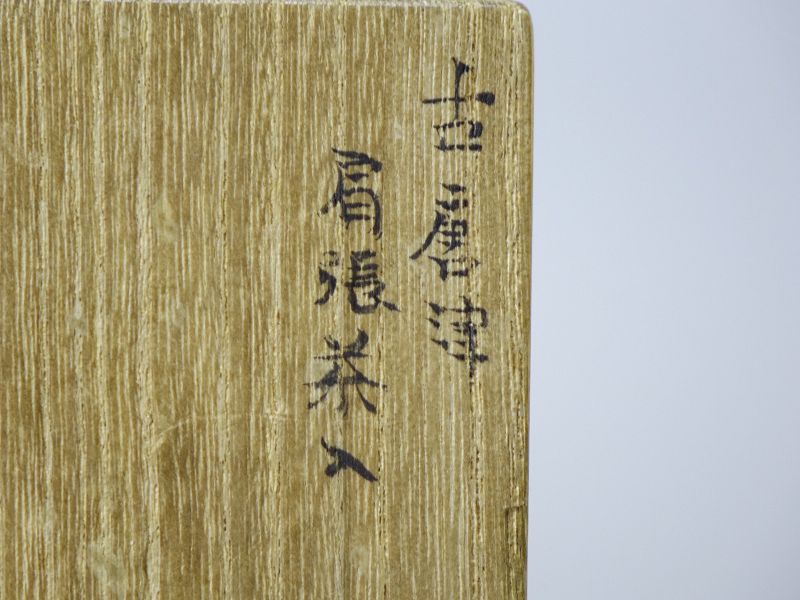 古唐津
肩張茶入